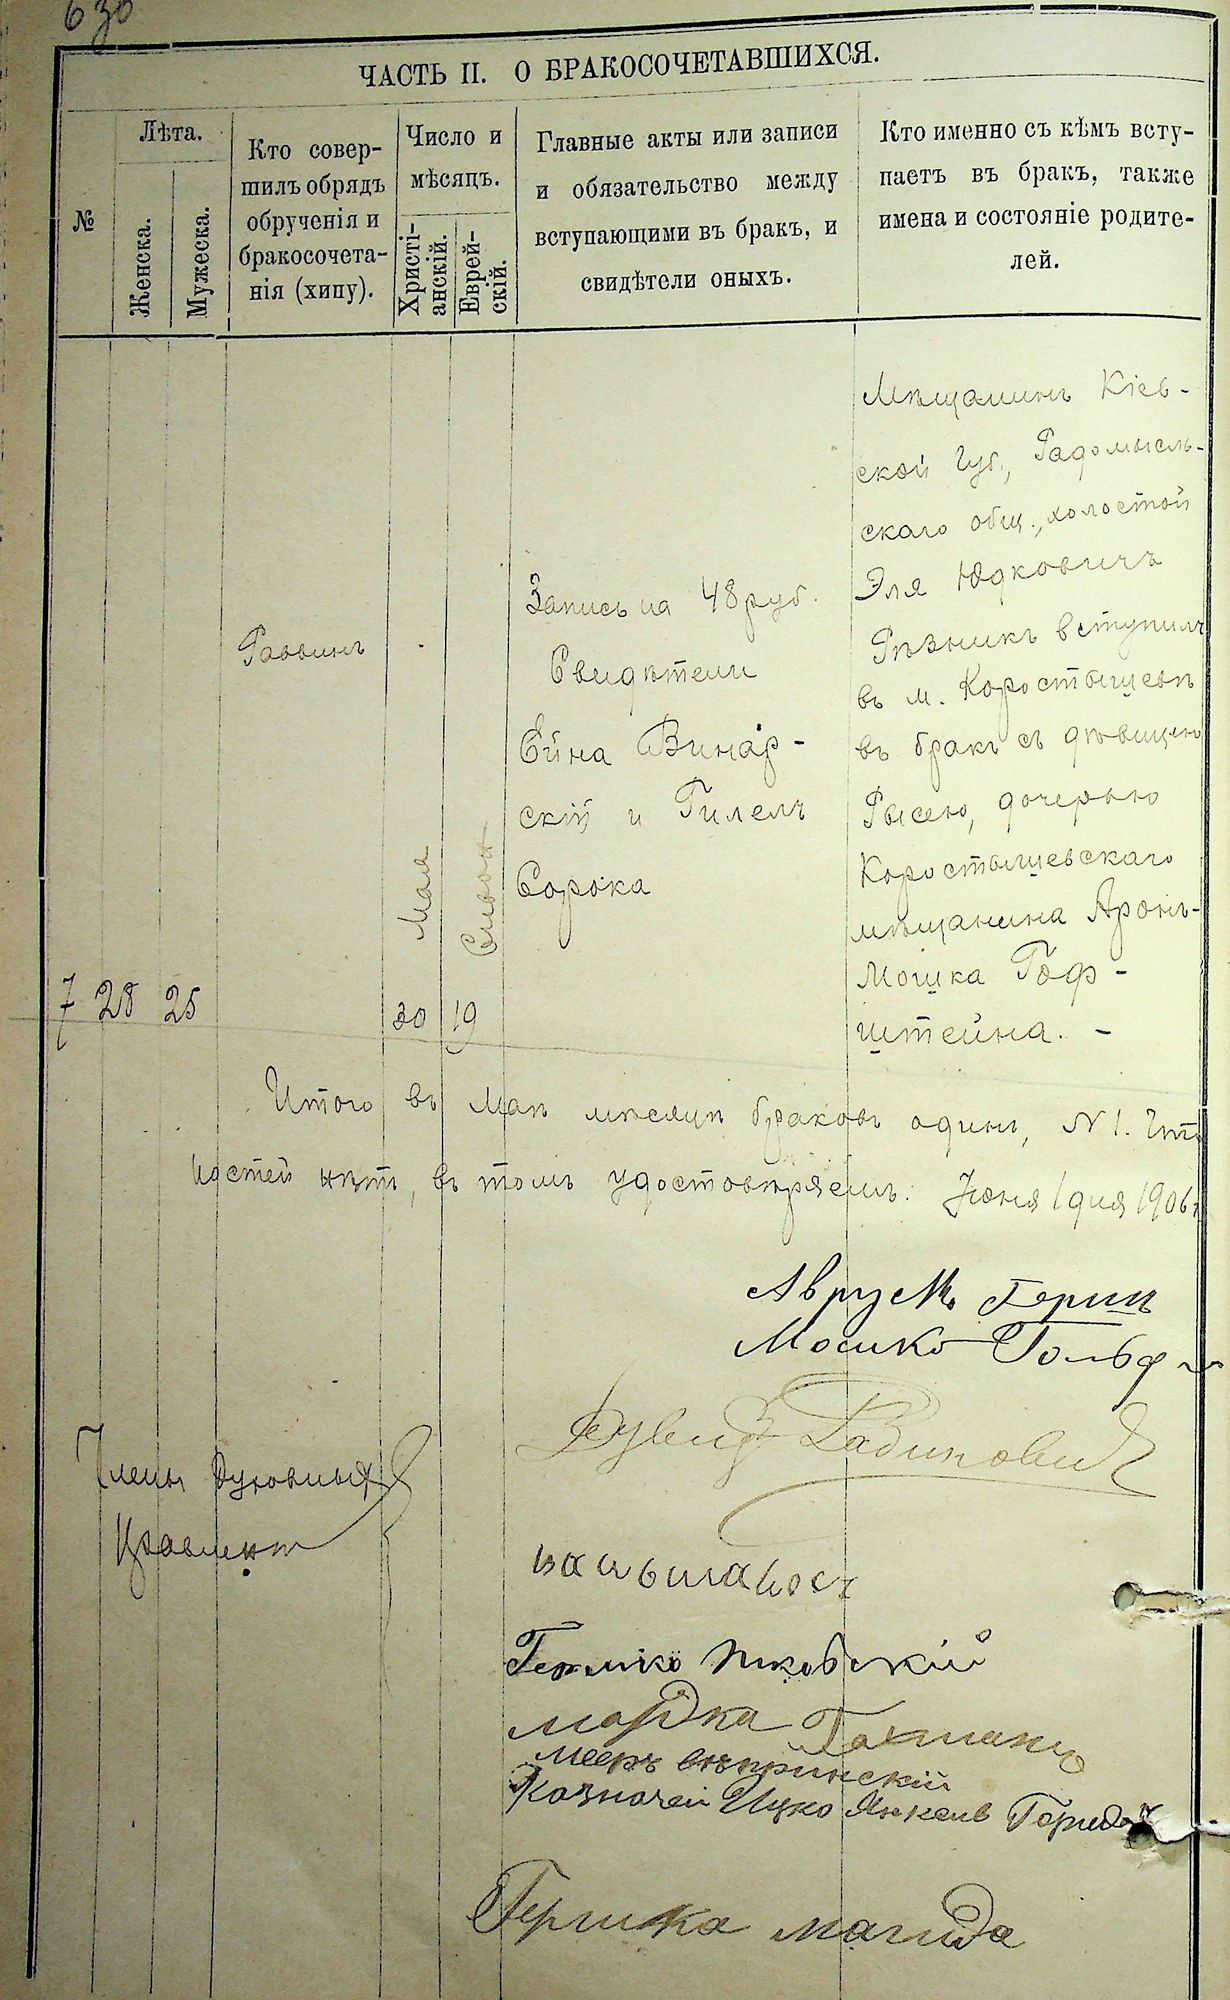 630
ЧАСТЬ II. О БРАКОСОЧЕТАВШИХСЯ.
№
Лѣта.
Женска.
Мужеска.
Кто совер-
шилъ обрядъ
обрученія и
бракосочета-
нія (хипу).
Число и
мѣсяцъ.
Христі-
анскій.
Еврей-
скій.
Главные акты или записи
и обязательство между
вступающими въ бракъ, и
свидѣтели оныхъ.
Кто именно съ кѣмъ всту-
паетъ въ бракъ, также
имена и состояніе родите-
лей.
7
28
25
Раввинъ
Мая
30
Сивонъ
19
Запись на 48 руб.
Свидѣтели
Винар-
скій и Гилель
Сорока
Мѣщанинъ Кіев-
ской губ., Радомысль-
скаго общ., холостой
Эля Юдковичъ
Рѣзникъ вступилъ
въ м. Коростышевѣ
въ бракъ съ дѣвицею
Рысею, дочерью
Коростышевскаго
мѣщанина Аронъ-
Мошка Гоф-
штейна. -
Итого въ Маѣ мѣсяцѣ браковъ одинъ, N 1.
ностей нѣтъ, въ томъ удостовѣряемъ. Іюня 1 дня 1906 г.
Аврумъ Герш
Мошко
Рувинъ Рабиновичъ
Члены Духовныхъ
Правлен
Мордка Гохманъ
Мееръ
Казначей Ицко Янкель
Гершка Магида